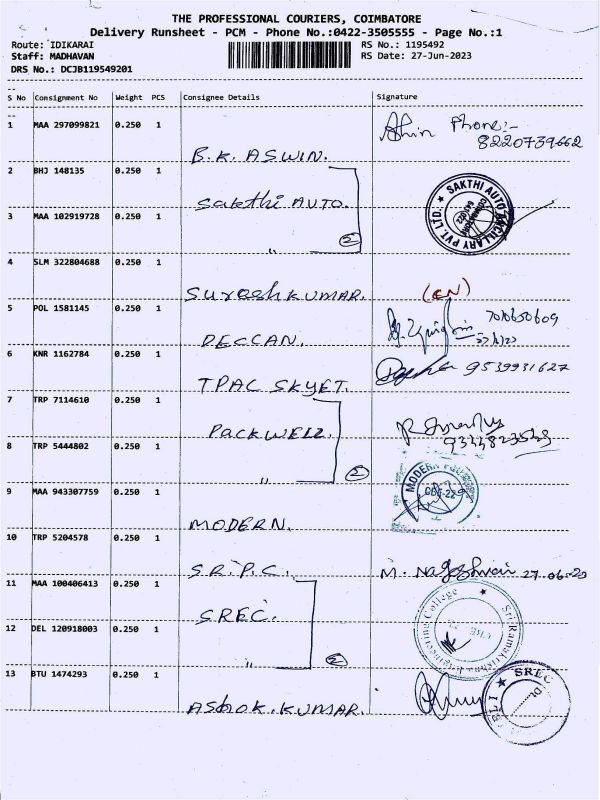 THE PROFESSIONAL COURIERS, COIMBATORE
Delivery Runsheet - PCM - Phone No.:0422-3505555 - Page No.:1
Route: IDIKARAI RS No.: 1195492
Staff: MADHAVAN RS Date: 27-Jun-2023
DRS No.: DCJB119549201
S No Consignment No Weight PCS Consignee Details Signature
1 MAA 297099821 0.250 1
Phone:-
8220739662
B.K. ASWIN.
2 BHJ 148135 0.250 1
Sakthi AUTO.
SAKTHI AUTO ANCILLARY PVT. LTD.
3 MAA 102919728 0.250 1
" 2
4 SLM 322804688 0.250 1
Suresh KUMAR.
5 POL 1581145 0.250 1
DECCAN.
6 KNR 1162784 0.250 1
9539931627
TPAC SKYET.
7 TRP 7114610 0.250 1
PackWELL.
8 TRP 5444802 0.250 1
" 2
9 MAA 943307759 0.250 1
MODERN
MODERN.
10 TRP 5204578 0.250 1
S.R.P.C.
11 MAA 100406413 0.250 1
SREC.
Sri Ramakrishna Engineering College
12 DEL 120918003 0.250 1
" 2
13 BTU 1474293 0.250 1
SREC
Ashok.KUMAR.